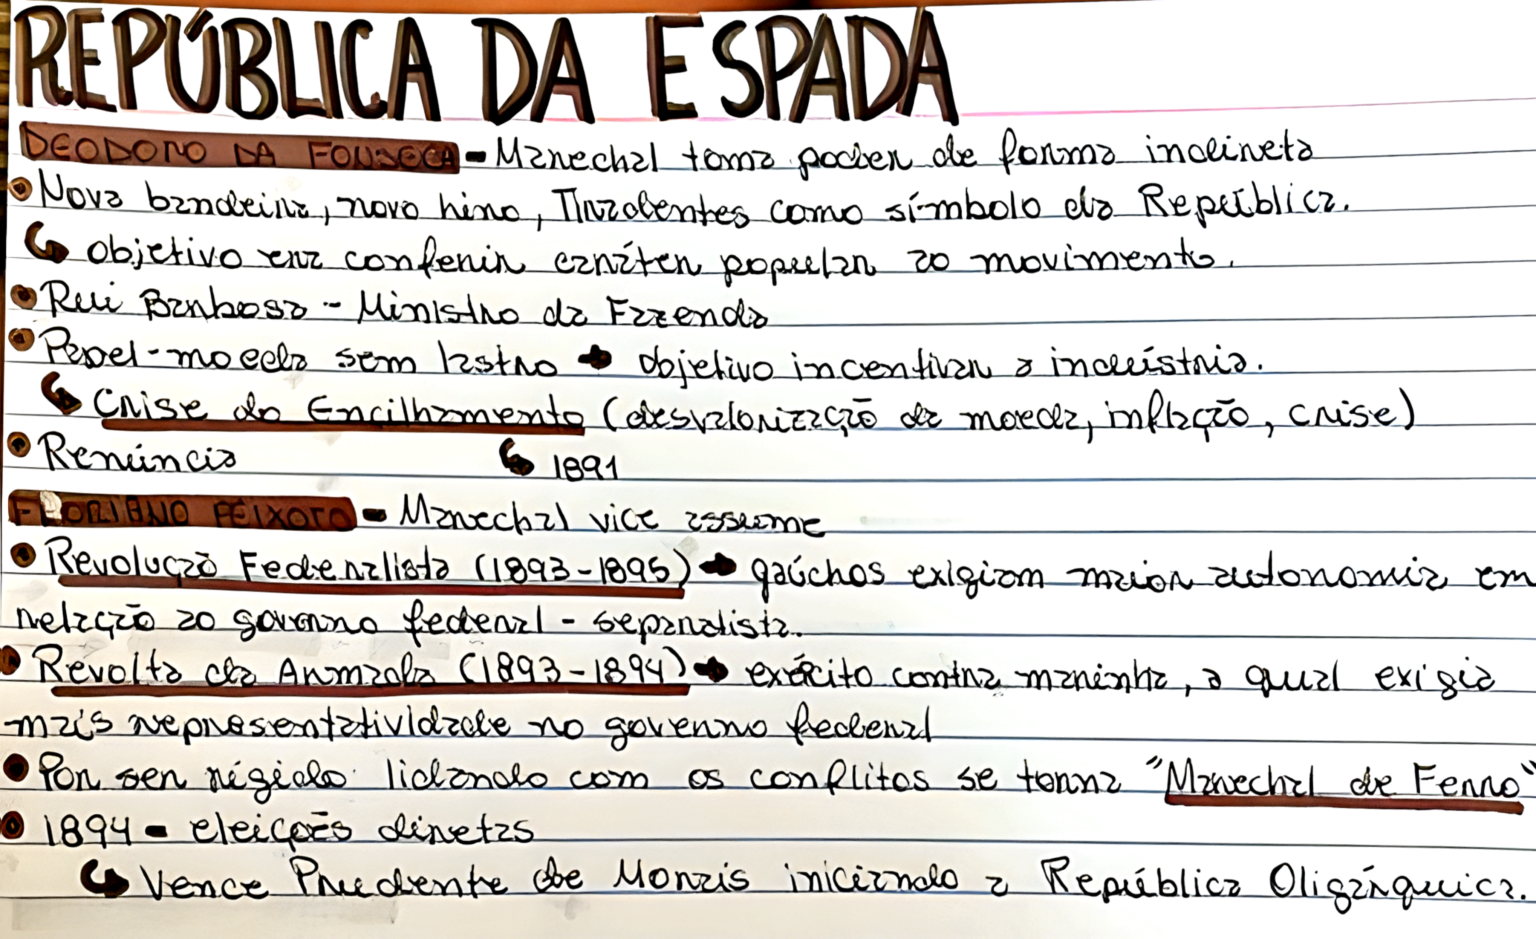 REPÚBLICA DA ESPADA
DEODORO DA FONSECA - Marechal toma poder de forma indireta
• Nova bandeira, novo hino, Tiradentes como símbolo da República.
↳ objetivo era conferir caráter popular ao movimento.
• Rui Barbosa - Ministro da Fazenda
• Papel-moeda sem lastro → objetivo incentivar a indústria.
↳ Crise do Encilhamento (desvalorização da moeda, inflação, crise)
• Renúncia ↳ 1891
FLORIANO PEIXOTO - Marechal vice assume
• Revolução Federalista (1893-1895) → gaúchos exigiam maior autonomia em
relação ao governo federal - separatista.
• Revolta da Armada (1893-1894) → exército contra marinha, a qual exigia
mais representatividade no governo federal
• Por ser rígido lidando com os conflitos se torna "Marechal de Ferro"
• 1894 - eleições diretas
↳ Vence Prudente de Morais iniciando a República Oligárquica.